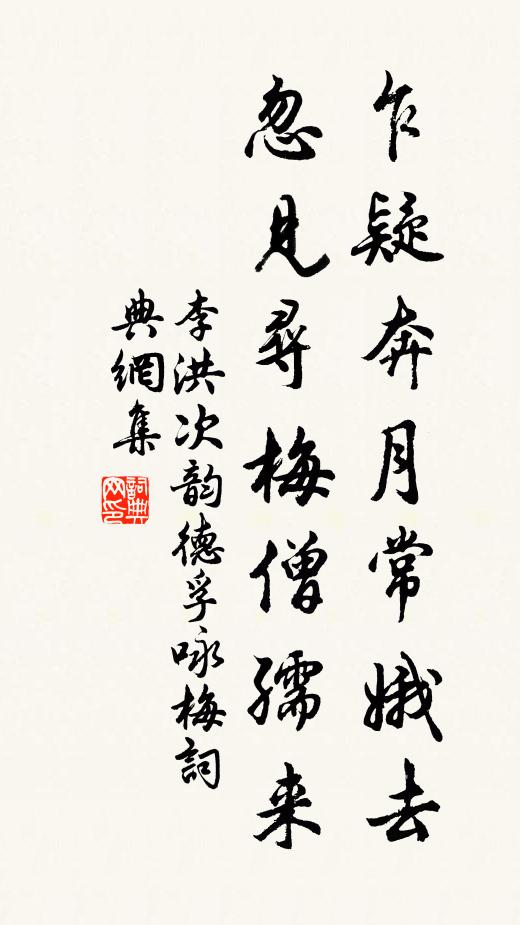 乍疑奔月常娥去
忽見尋梅僧孺来
李洪次韵德孚咏梅詞
典網集
詞典网印